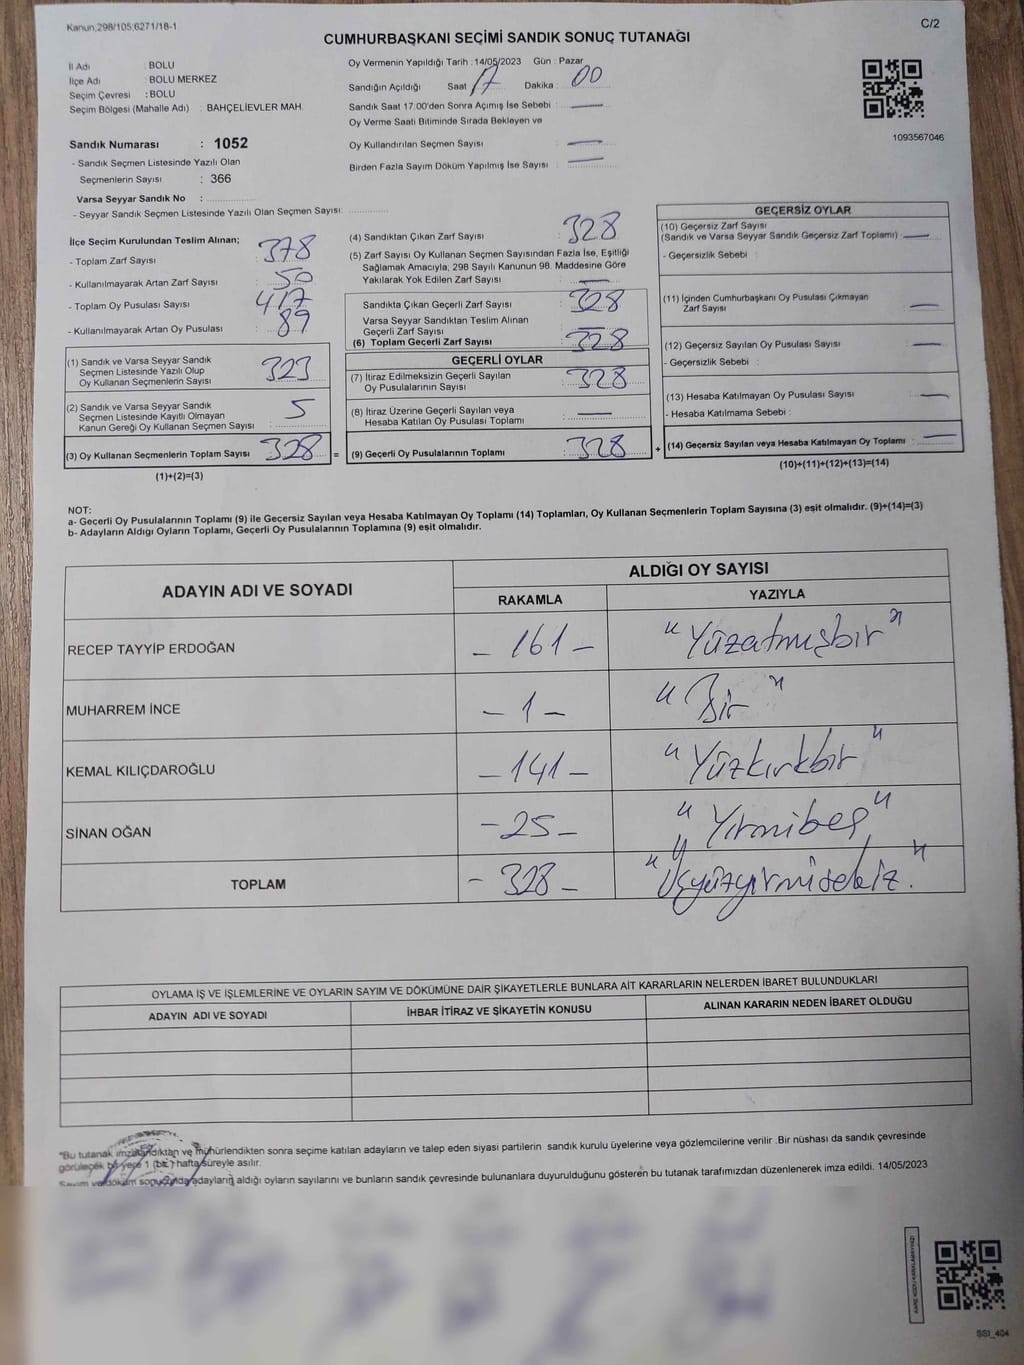 Kanun,298/105,6271/18-1
C/2
CUMHURBAŞKANI SEÇİMİ SANDIK SONUÇ TUTANAĞI
İl Adı : BOLU
İlçe Adı : BOLU MERKEZ
Seçim Çevresi : BOLU
Seçim Bölgesi (Mahalle Adı) : BAHÇELİEVLER MAH.
Sandık Numarası : 1052
- Sandık Seçmen Listesinde Yazılı Olan
Seçmenlerin Sayısı : 366
Varsa Seyyar Sandık No :
- Seyyar Sandık Seçmen Listesinde Yazılı Olan Seçmen Sayısı:
Oy Vermenin Yapıldığı Tarih : 14/05/2023 Gün : Pazar
Sandığın Açıldığı Saat : 17 Dakika : 00
Sandık Saat 17:00'den Sonra Açımış İse Sebebi : —
Oy Verme Saati Bitiminde Sırada Bekleyen ve
Oy Kullandırılan Seçmen Sayısı : —
Birden Fazla Sayım Döküm Yapılmış İse Sayısı : —
1093567046
İlçe Seçim Kurulundan Teslim Alınan;
- Toplam Zarf Sayısı : 378
- Kullanılmayarak Artan Zarf Sayısı : 50
- Toplam Oy Pusulası Sayısı : 417
- Kullanılmayarak Artan Oy Pusulası : 89
(1) Sandık ve Varsa Seyyar Sandık
Seçmen Listesinde Yazılı Olup
Oy Kullanan Seçmenlerin Sayısı : 323
(2) Sandık ve Varsa Seyyar Sandık
Seçmen Listesinde Kayıtlı Olmayan
Kanun Gereği Oy Kullanan Seçmen Sayısı : 5
(3) Oy Kullanan Seçmenlerin Toplam Sayısı : 328 =
(1)+(2)=(3)
(4) Sandıktan Çıkan Zarf Sayısı : 328
(5) Zarf Sayısı Oy Kullanan Seçmen Sayısından Fazla İse, Eşitliği
Sağlamak Amacıyla, 298 Sayılı Kanunun 98. Maddesine Göre
Yakılarak Yok Edilen Zarf Sayısı : —
Sandıkta Çıkan Geçerli Zarf Sayısı : 328
Varsa Seyyar Sandıktan Teslim Alınan
Geçerli Zarf Sayısı : —
(6) Toplam Geçerli Zarf Sayısı : 328
GEÇERLİ OYLAR
(7) İtiraz Edilmeksizin Geçerli Sayılan
Oy Pusulalarının Sayısı : 328
(8) İtiraz Üzerine Geçerli Sayılan veya
Hesaba Katılan Oy Pusulası Toplamı : —
(9) Geçerli Oy Pusulalarının Toplamı : 328 +
GEÇERSİZ OYLAR
(10) Geçersiz Zarf Sayısı
(Sandık ve Varsa Seyyar Sandık Geçersiz Zarf Toplamı) : —
- Geçersizlik Sebebi :
(11) İçinden Cumhurbaşkanı Oy Pusulası Çıkmayan
Zarf Sayısı : —
(12) Geçersiz Sayılan Oy Pusulası Sayısı : —
- Geçersizlik Sebebi :
(13) Hesaba Katılmayan Oy Pusulası Sayısı : —
- Hesaba Katılmama Sebebi :
(14) Geçersiz Sayılan veya Hesaba Katılmayan Oy Toplamı : —
(10)+(11)+(12)+(13)=(14)
NOT:
a- Geçerli Oy Pusulalarının Toplamı (9) ile Geçersiz Sayılan veya Hesaba Katılmayan Oy Toplamı (14) Toplamları, Oy Kullanan Seçmenlerin Toplam Sayısına (3) eşit olmalıdır. (9)+(14)=(3)
b- Adayların Aldığı Oyların Toplamı, Geçerli Oy Pusulalarının Toplamına (9) eşit olmalıdır.
ADAYIN ADI VE SOYADI ALDIĞI OY SAYISI
RAKAMLA YAZIYLA
RECEP TAYYİP ERDOĞAN - 161 - "Yüzatmışbir"
MUHARREM İNCE - 1 - "Bir"
KEMAL KILIÇDAROĞLU - 141 - "Yüzkırkbir"
SİNAN OĞAN - 25 - "Yirmibeş"
TOPLAM - 328 - "Üçyüzyirmisekiz."
OYLAMA İŞ VE İŞLEMLERİNE VE OYLARIN SAYIM VE DÖKÜMÜNE DAİR ŞİKAYETLERLE BUNLARA AİT KARARLARIN NELERDEN İBARET BULUNDUKLARI
ADAYIN ADI VE SOYADI İHBAR İTİRAZ VE ŞİKAYETİN KONUSU ALINAN KARARIN NEDEN İBARET OLDUĞU
"Bu tutanak imzalandıktan ve mühürlendikten sonra seçime katılan adayların ve talep eden siyasi partilerin sandık kurulu üyelerine veya gözlemcilerine verilir .Bir nüshası da sandık çevresinde
görülecek bir yere 1 (bir) hafta süreyle asılır.
Sayım ve döküm sonucunda adayların aldığı oyların sayılarını ve bunların sandık çevresinde bulunanlara duyurulduğunu gösteren bu tutanak tarafımızdan düzenlenerek imza edildi. 14/05/2023
SSI_404